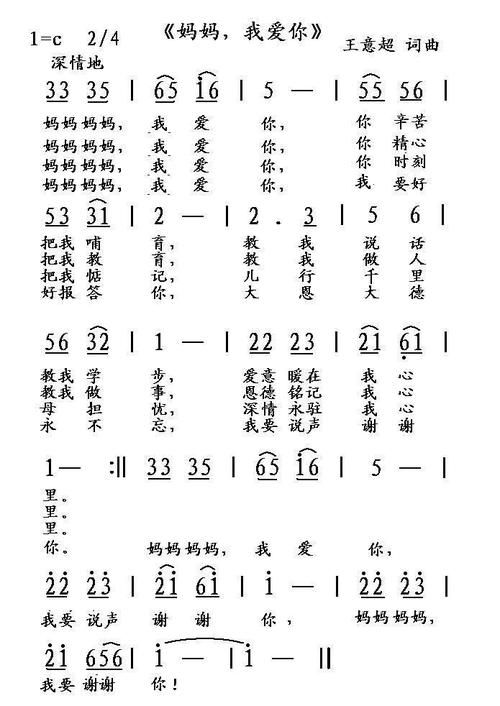 《妈妈，我爱你》
1=c 2/4 王意超 词曲
深情地
33 35 | 65 i6 | 5 — | 55 56 |
妈妈妈妈， 我 爱 你， 你 辛苦
妈妈妈妈， 我 爱 你， 你 精心
妈妈妈妈， 我 爱 你， 你 时刻
妈妈妈妈， 我 爱 你， 我 要好
53 31 | 2 — | 2 . 3 | 5 6 |
把我 哺 育， 教 我 说 话
把我 教 育， 教 我 做 人
把我 惦 记， 儿 行 千 里
好报 答 你， 大 恩 大 德
56 32 | 1 — | 22 23 | 21 61 |
教我 学 步， 爱意 暖在 我 心
教我 做 事， 恩德 铭记 我 心
母 担 忧， 深情 永驻 我 心
永 不 忘， 我要 说声 谢 谢
1— :‖ 33 35 | 65 i6 | 5 — |
里。
里。
里。
你。 妈妈 妈妈， 我 爱 你，
22 23 | 2i 6i | i — | 22 23 |
我要 说声 谢 谢 你， 妈妈 妈妈，
2i 656 | i — | i — ‖
我要 谢谢 你！